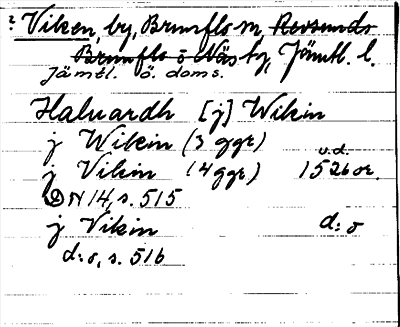 ? Viken, by, Brunflo sn, Revsunds
Brunflo o Näs tg, Jämtl. l.
Jämtl. ö. doms.
Haluardh [j] Wikin
j Wikin (3 ggr)
j Vikin (4 ggr) u.d. 1526 or.
DN 14, s. 515
j Vikin d:o
d:o, s. 516